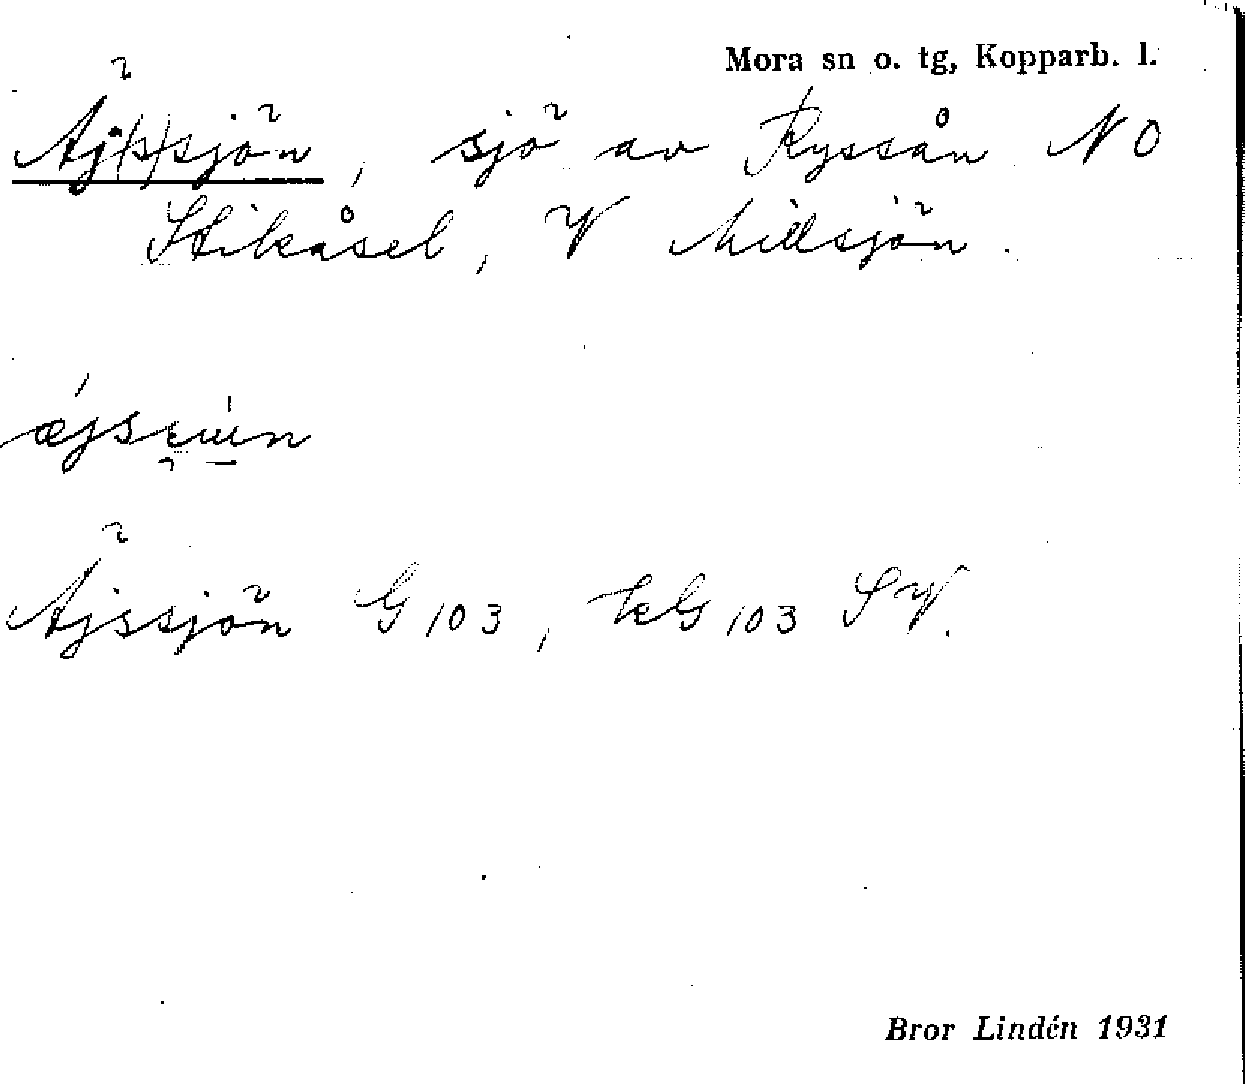 Mora sn o. tg, Kopparb. l.
Äj(s)sjön, sjö av Ryssån NO
Stikåsel, V Millsjön.
Äjssjön G103, kG103 SV.
Bror Lindén 1931